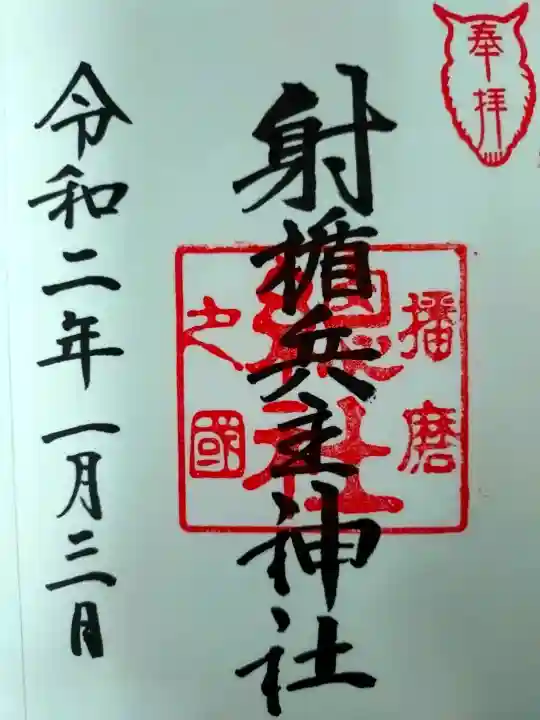 奉拝
射楯兵主神社
播磨
総社
之國
令和二年一月三日